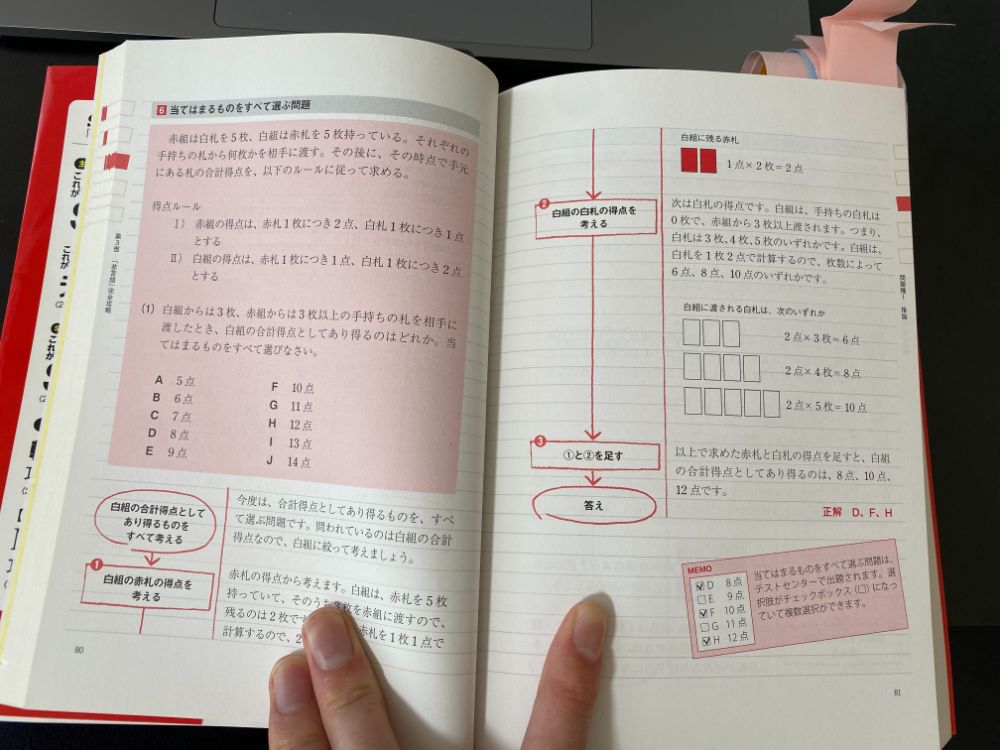 6 当てはまるものをすべて選ぶ問題
赤組は白札を5枚、白組は赤札を5枚持っている。それぞれの
手持ちの札から何枚かを相手に渡す。その後に、その時点で手元
にある札の合計得点を、以下のルールに従って求める。
得点ルール
Ⅰ) 赤組の得点は、赤札1枚につき2点、白札1枚につき1点
とする
Ⅱ) 白組の得点は、赤札1枚につき1点、白札1枚につき2点
とする
(1) 白組からは3枚、赤組からは3枚以上の手持ちの札を相手に
渡したとき、白組の合計得点としてあり得るのはどれか。当
てはまるものをすべて選びなさい。
A 5点
B 6点
C 7点
D 8点
E 9点
F 10点
G 11点
H 12点
I 13点
J 14点
白組の合計得点として
あり得るものを
すべて考える
今度は、合計得点としてあり得るものを、すべ
て選ぶ問題です。問われているのは白組の合計
得点なので、白組に絞って考えましょう。
1
白組の赤札の得点を
考える
赤札の得点から考えます。白組は、赤札を5枚
持っていて、そのうち3枚を赤組に渡すので、
残るのは2枚です 赤札を1枚1点で
計算するので、2
80
第3部 「非言語」完全攻略
これが
これが
白組に残る赤札
1点×2枚=2点
2
白組の白札の得点を
考える
次は白札の得点です。白組は、手持ちの白札は
0枚で、赤組から3枚以上渡されます。つまり、
白札は3枚、4枚、5枚のいずれかです。白組は、
白札を1枚2点で計算するので、枚数によって
6点、8点、10点のいずれかです。
白組に渡される白札は、次のいずれか
2点×3枚=6点
2点×4枚=8点
2点×5枚=10点
3
①と②を足す
答え
以上で求めた赤札と白札の得点を足すと、白組
の合計得点としてあり得るのは、8点、10点、
12点です。
正解 D、F、H
MEMO
D 8点
E 9点
F 10点
G 11点
H 12点
当てはまるものをすべて選ぶ問題は、
テストセンターで出題されます。選
択肢がチェックボックス(□)になっ
ていて複数選択ができます。
問題種1 推論
81